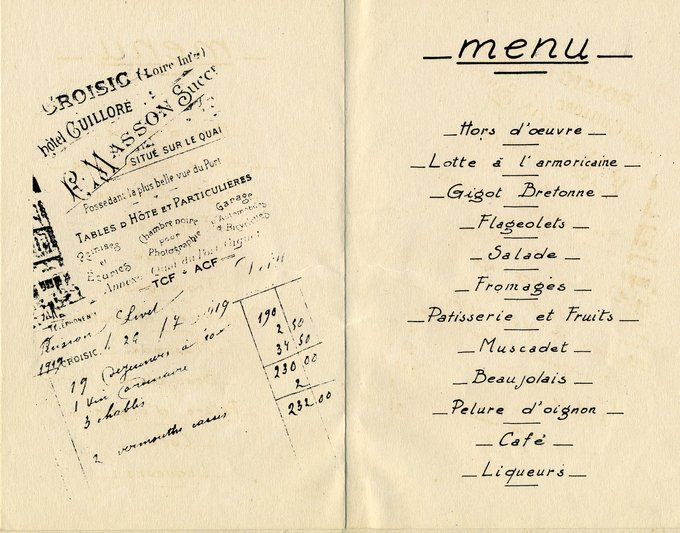 CROISIC (Loire Infre)
hôtel GUILLORE
P. MASSON Succr
SITUÉ SUR LE QUAI
Possedant la plus belle vue du Port
TABLES D'HÔTE ET PARTICULIÈRES
Remises et Écuries
Chambre noire pour Photographie
Garage d'Automobiles & Bicyclettes
Annexe Quai du Port
TCF - ACF
TÉLÉPHONE
CROISIC, 26 / 7 1919
19 Dejeuners à 10x 190
1 vin ordinaire 2 50
3 chablis 34 50
230,00
2 vermouths cassis 2
232,00
menu
Hors d'œuvre
Lotte à l'armoricaine
Gigot Bretonne
Flageolets
Salade
Fromages
Patisserie et Fruits
Muscadet
Beaujolais
Pelure d'oignon
Café
Liqueurs